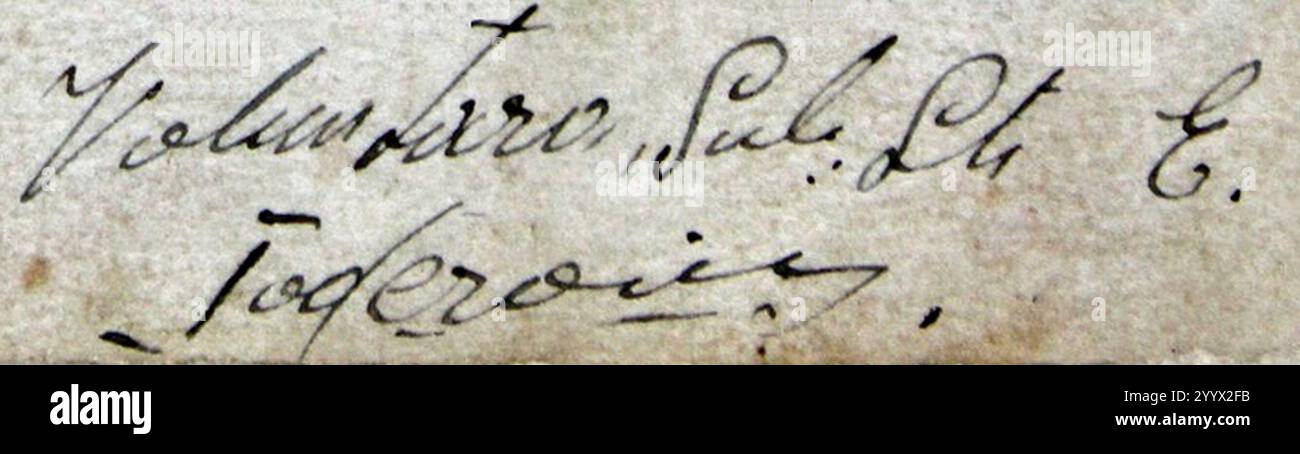 Voluntaro, Sub. Lt. E.
Toderoiu.
alamy
Image ID: 2YYX2FB
www.alamy.com